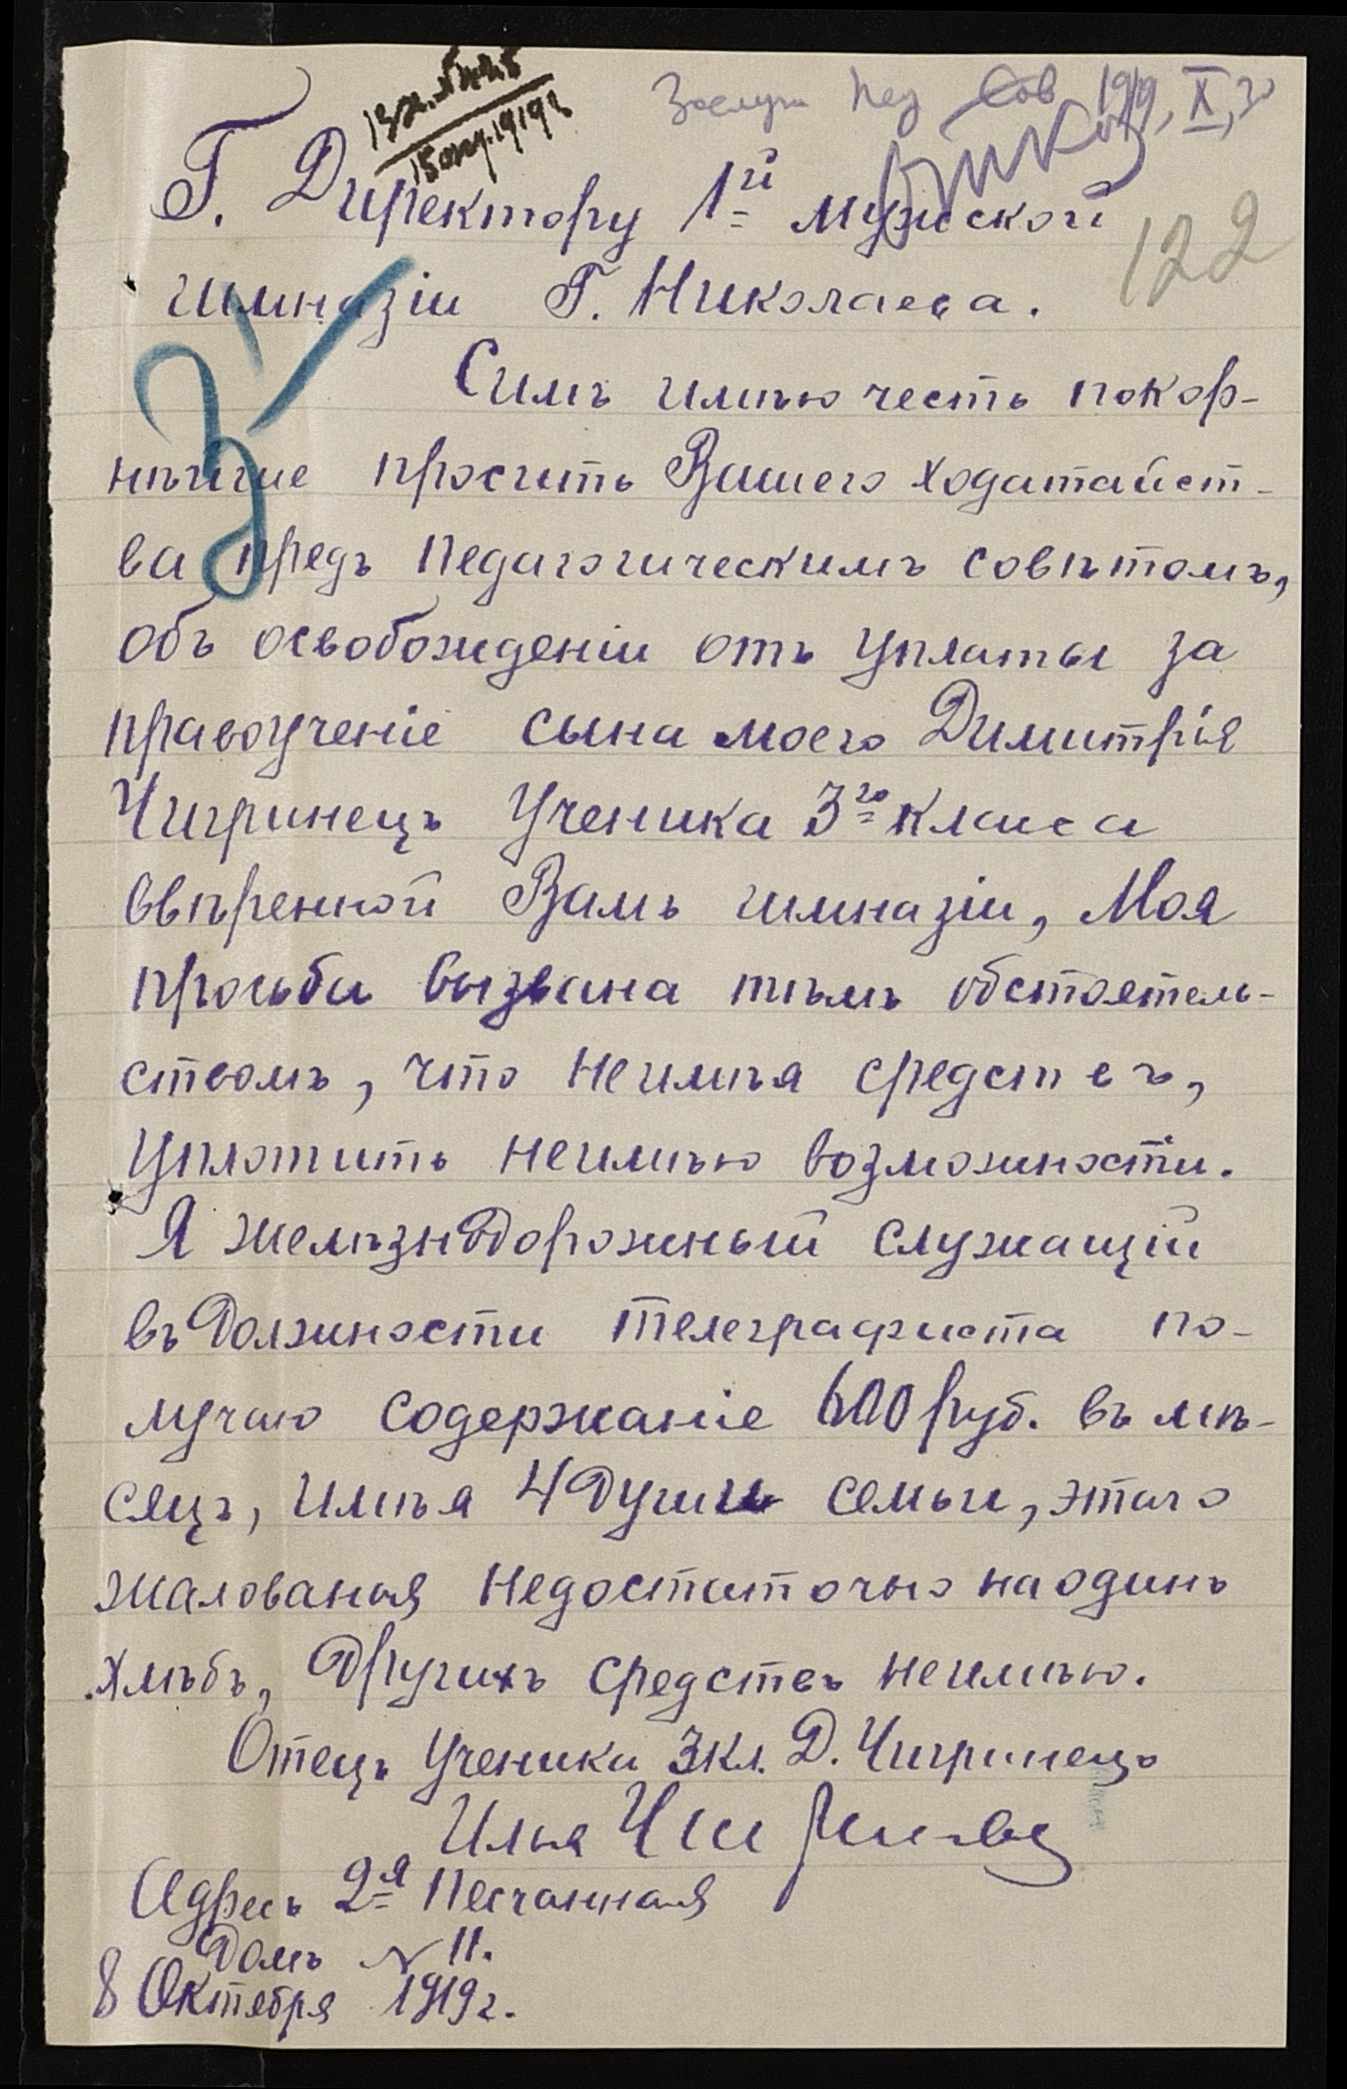 1919, X, 30
15 окт. 1919 г
122
Г. Директору 1й мужской
гимназіи Г. Николаева.
Симъ имѣю честь покор-
нѣйше просить Вашего ходатайст-
ва предъ педагогическимъ совѣтомъ,
объ освобожденіи отъ уплаты за
правоученіе сына моего Димитрія
Чигринецъ Ученика 3го класса
ввѣренной Вамъ гимназіи, Моя
просьба вызвана тѣмъ обстоятель-
ствомъ, что неимѣя средствъ,
уплотить неимѣю возможности.
Я желѣзнодорожный служащій
въ должности телеграфиста по-
лучаю содержаніе 600 руб. въ мѣ-
сяцъ, имѣя 4 души семьи, этого
жалованья недостаточно на одинъ
хлѣбъ, других средствъ неимѣю.
Отецъ Ученика 3 кл. Д. Чигринецъ
Илья Чигринец
Адресъ 2я Песчанная
домъ № 11.
8 Октября 1919 г.